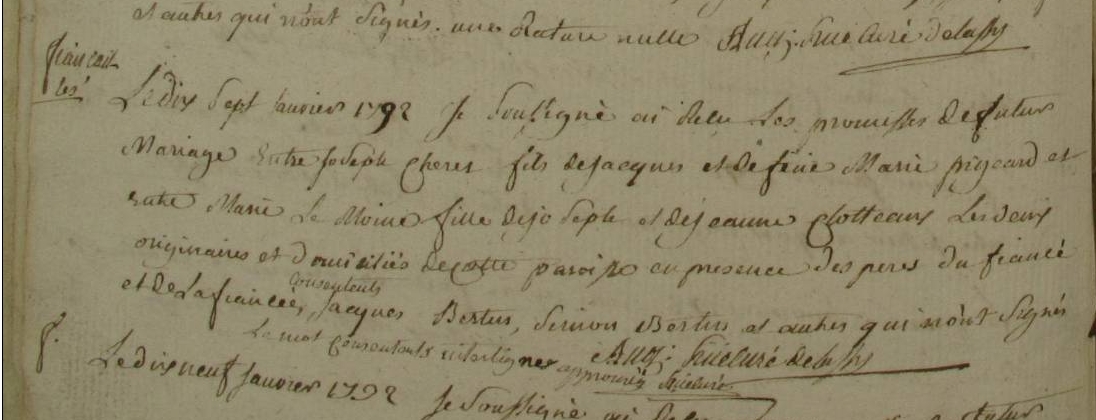 et autres qui n'ont signés. une Rature nulle curé
fiançail
les
Le dix sept Janvier 1792 Je soussigné ai Relu Les promesses de futur
Mariage Entre joseph Cheret fils de jacques et de feüe Marie et
Entre Marie Le Moine fille de joseph et de jeanne Clotteaux Les deux
originaires et domiciliés de cette paroisse en presence des peres du fiancé
consentents
et de La fiancée, jacques Bertus, Simon Bertus et autres qui n'ont signés
Le mot consentents interligner approuvés
f.
Le dix neuf Janvier 1792 Je soussigné ai futur